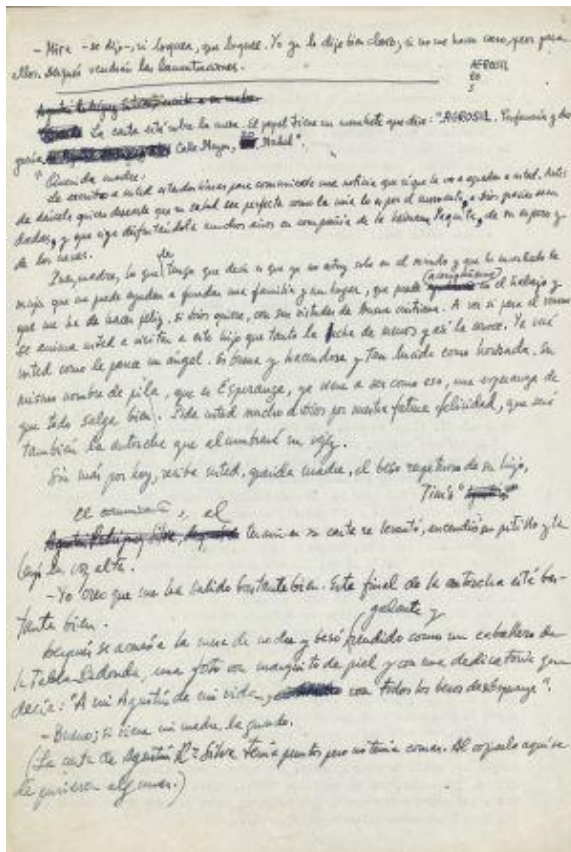 - Mira -se dijo-, si loquea, que loquee. Yo ya lo dije bien claro, si no me hacen caso, peor para
ellos. Después vendrán las lamentaciones.
AEROSIL
La carta está sobre la mesa. El papel tiene un membrete que dice: "AGROSIL. Perfumería y dro-
guería Calle Mayor, Madrid".
"Querida madre:
Le escribo a usted estas dos líneas para comunicarle una noticia que sé que le va a agradar a usted. Antes
de decírselo quiero desearle que su salud sea perfecta como la mía lo es por el momento, a Dios gracias sean
dadas, y que siga disfrutándola muchos años en compañía de la hermana Paquita, de su esposo y
de los nenes.
Pues, madre, lo que le tengo que decir es que ya no estoy solo en el mundo y que he encontrado la
mujer que me puede ayudar a fundar una familia y un hogar, que puede acompañarme en el trabajo y
que me ha de hacer feliz, si Dios quiere, con sus virtudes de buena cristiana. A ver si para el verano
se anima usted a visitar a este hijo que tanto la echa de menos y así la conoce. Ya verá
usted como le parece un ángel. Es buena y hacendosa y tan lucida como honrada. Su
mismo nombre de pila, que es Esperanza, ya viene a ser como eso, una esperanza de
que todo salga bien. Pida usted mucho a Dios por nuestra futura felicidad, que será
también la antorcha que alumbrará su vejez.
Sin más por hoy, reciba usted, querida madre, el beso respetuoso de su hijo,
Tinín"
el
terminar su carta se levantó, encendió un pitillo y la
leyó en voz alta.
- Yo creo que me ha salido bastante bien. Este final de la antorcha está bas-
tante bien.
Después se acercó a la mesa de noche y besó galante y rendido como un caballero de
la Tabla Redonda, una foto con marquito de piel y con una dedicatoria que
decía: "A mi Agustín de mi vida, con todos los besos de su Esperanza".
- Bueno; si viene mi madre, la guardo.
(La carta de Agustín Rz Silva tenía puntos pero no tenía comas. Al copiarlo aquí se
le pusieron algunas.)